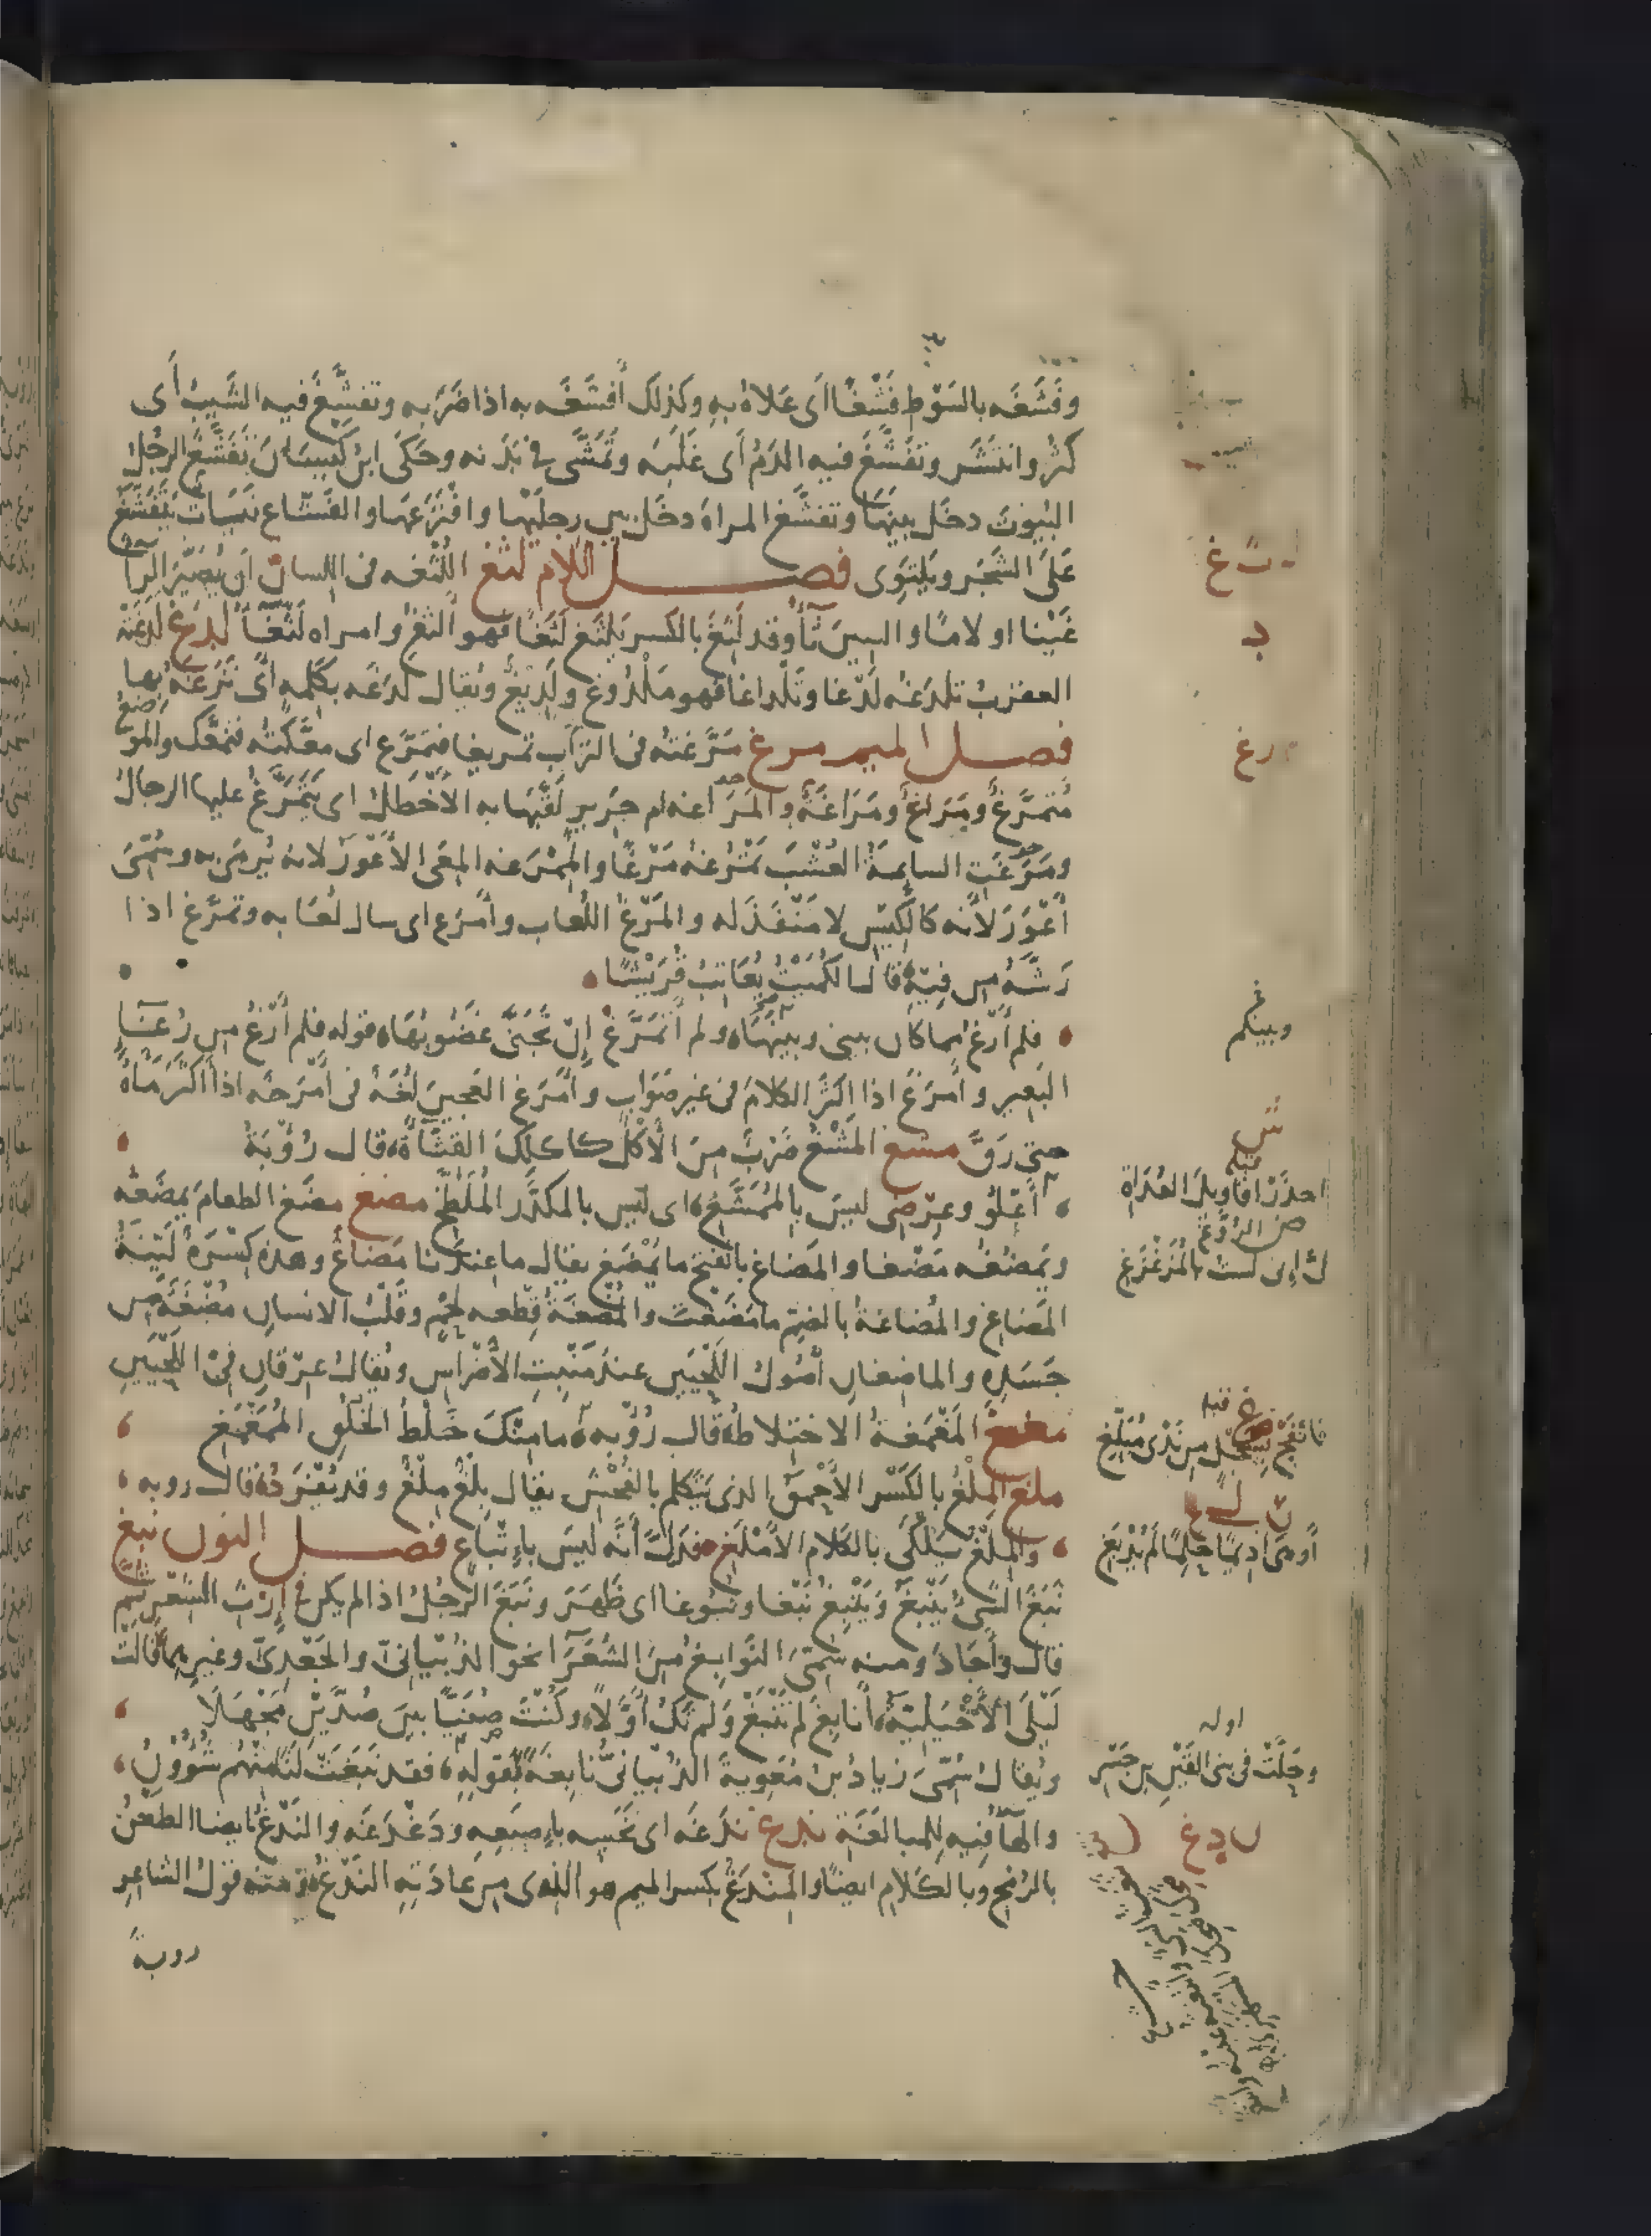 وفَشَغَه بالسَوْطِ فَشْغًا أى عَلاهُ به وكذلك أَفشَغَه به اذا ضَرَبه وتفشَّغَ فيه الشَيْبُ أى
كثُر وانتَشَر وتفَشَّغَ فيه الدَمُ أى غَلَبَه وتَمَشَّى فى بَدَنه وحَكَى ابنُ كَيْسَانَ تَفَشَّغَ الرجُلُ
البُيوتَ دخَل بينَها وتفشَّغ المراةَ دخَل بين رِجلَيْها وافْتَرَعها والفَشّاغ نَباتٌ يَتَفَشَّغ
عَلَى الشَجَر ويَلتَوِى فصل اللام لثغ اللُثْغه فى اللِسان أن يُصَيِّرَ الرآ
غَيْنا او لامًا والسِينَ ثآ وقد لَثِغَ بالكسر يَلثَغ لَثَغًا فهو أَلثَغُ وامراه لَثْغَآ لدغ لدَغَتْه
العقربُ تلدَغُه لَدْغا وتَلْداغا فهو مَلْدُوغ ولَدِيغٌ ويُقال لدَغَه بكَلِمهٍ أى نَزَغه بها
فصل الميم مرغ مَرَّغتُه فى التراب تمريغا فتمَرَّغ اى معَّكتُه فتمَعَّك والموضِعُ
مُتَمَرَّغٌ ومَرَاغٌ ومَرَاغَةٌ والمَرَاغه ام جَرِير لَقَّبَها به الأخطَلُ اى يَتَمَرَّغُ عليها الرجالُ
ومَرَغَتِ السايمةُ العُشْبَ تَمْرُغه مَرْغًا والمِمْرَغه المِعَى الأَعْوَرُ لانه يُرمَى به وسُمّىَ
أَعْوَرَ لأنه كالكِيْس لا مَنْفَذَ له والمَرْغُ اللُعاب وأَمرَغ اى سال لُعَابه وتمرَّغ اذا
رَشَّهُ من فِيهِ قال الكُمَيْتُ يُعَاتِبُ قُرَيْشًا
فلم أَرْغُ مما كان بينى وبينَها ولم أَتمَرَّغْ إن تَجَنَّى غَضُوبُها قوله فلم أَرْغُ من رُغآ
البَعير وأمرَغَ اذا اكثَرَ الكلامَ فى غير صَوَابٍ وأمرَغ العَجِينَ لُغَةٌ فى أمْرَخَه اذا أكثَر مَآهُ
حتى رَقَّ مشغ المَشْغُ ضَرْبٌ مِنَ الأَكْل كاكلك القثّآة قال رُؤْبَةُ
أَعْلُو وعِرْضِى ليسَ بالمُمَشَّغِ اى ليس بالمكدَّر المُلَطَّخ مضغ مضَغ الطعامَ يمضَغه
ويَمضُغه مَضْغا والمَضاغ بالفتح ما يُمْضَغ يقال ما عِندنا مَضاغٌ وهذه كِسْرَةٌ لَيّنَةُ
المَضاغِ والمُضاغةُ بالضم ما مَضَغتَ والمُضغَةُ قِطعه لَحْمٍ وقَلْبُ الانسان مُضْغَةٌ من
جَسَدِه والماضِغان أُصُولُ اللَحْيَين عند مَنْبِتِ الأضْراسِ ويُقالُ عِرْقان فى اللَحْيَينِ
مغمغ المَغْمَغةُ الاختِلاطُ قال رُؤْبه ما مِنْكَ خَلْطُ الخُلُقِ المُمَغْمَغِ
ملغ المِلْغُ بالكَسْر الأحْمقُ الذى يتكلم بالفُحْش يقال بِلْغٌ مِلْغٌ وقد يُفْرَدُ قال روبه
والمِلْغُ يَلْكَى بالكَلام الأَمْلَغ فدَلَّ أنه ليسَ باِتْباع فصل النون نبغ
نَبَغَ الشىُ يَنْبَغُ ويَنْبِغُ نَبْغا ونُبوغا اى ظَهَرَ ونَبَغَ الرجُلُ اذا لم يكن فى إرْثِ الشِعْر ثم
قال وأجَادَ ومنه سُمِّىَ النَوابِغُ مِنَ الشُعَرآ نحو الذُبْيانىّ والجَعْدِىّ وغيرِهما قالَتْ
لَيْلَى الأَخْيَلِيّةُ أَنابِغَ لم تَنْبَغْ ولم تَكُ أوَّلَا وكُنْتَ صُنَيًّا بينَ صُدَّيْنِ مَجْهَلَا
ويُقالُ سُمّىَ زيادُ بنُ مُعٰوِيةَ الذُبْيانىُّ نابِغةً لقَولِه فقد نَبَغَتْ لَنَا مِنْهُم شُؤُونُ
والهآ فيه للمبالغَةِ ندغ نَدَغَه اى نَخَسه باِصبَعِه ودَغْدَغَه والنَدْغُ ايضا الطَعْنُ
بالرُمْح وبالكَلام ايضًا والمِندَغُ بكسر الميم هو الذى مِن عادَتِه النَدْغُ ومنه قولُ الشاعِر
روبةُ
رغ
وبينكم
احذَرْ اقاوِيلَ العُدَاةِ
إنى لست بالمُزَغْزَغِ
قبله
أو من اديمًا حَلِمًا لم يُدْبَغِ
اوله
وحَلَّتْ فى بنى القَيْنِ بن جَسْر
ن د غ